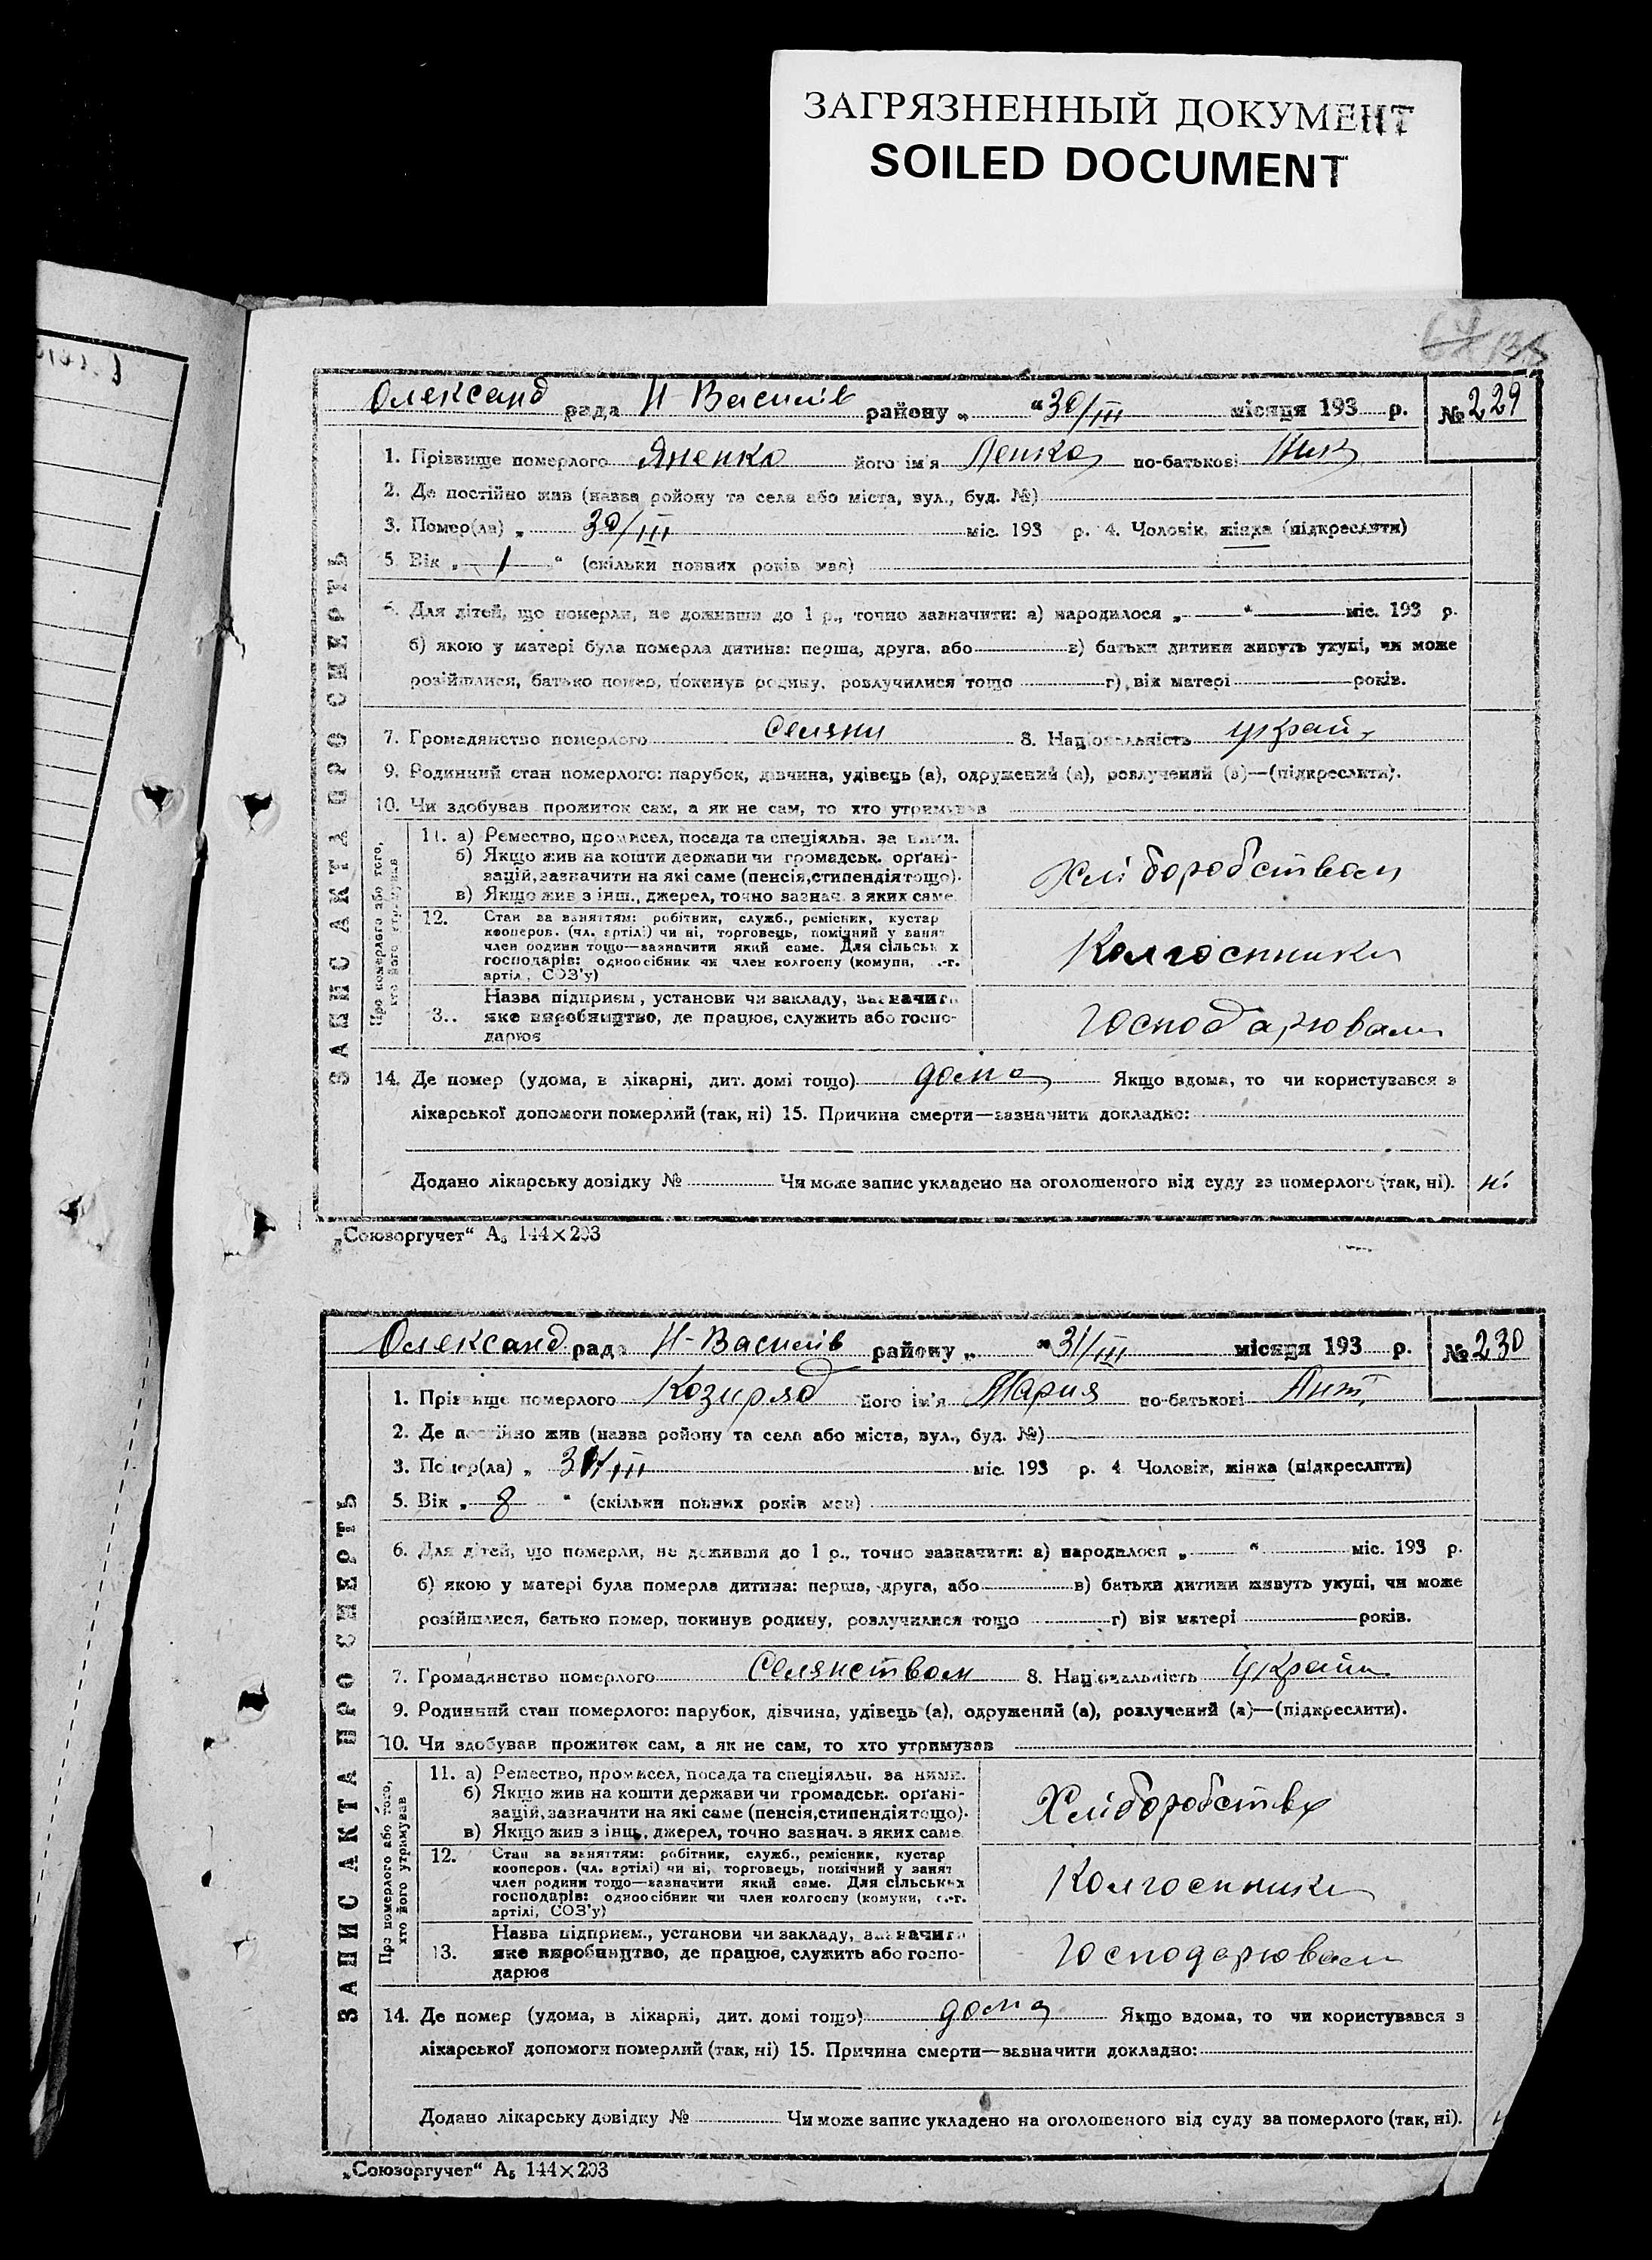 ЗАГРЯЗНЕННЫЙ ДОКУМЕНТ
SOILED DOCUMENT
Олександ рада Н-Василів району „ “ 30/III місяця 193 р. № 229
1. Прізвище померлого Яненко його ім'я по-батькові
2. Де постійно жив (назва ройону та села або міста, вул., буд. №)
3. Помер(ла) „ 30/III міс. 193 р. 4. Чоловік, жінка (підкреслити)
5. Вік „ 1 “ (скільки повних років мав)
6. Для дітей, що померли, не доживши до 1 р., точно зазначити: а) народилося „ “ міс. 193 р.
б) якою у матері була померла дитина: перша, друга, або в) батьки дитини живуть укупі, чи може
розійшлися, батько помер, покинув родину, розлучилися тощо г) вік матері років.
7. Громадянство померлого Селяни 8. Національність україн
9. Родинний стан померлого: парубок, дівчина, удівець (а), одружений (а), розлучений (а)—(підкреслити).
10. Чи здобував прожиток сам, а як не сам, то хто утримував
ЗАПИС АКТА ПРО СМЕРТЬ
Про померлого або того,
хто його утримував
11. а) Ремество, промисел, посада та спеціяльн. за ними.
б) Якщо жив на кошти держави чи громадськ. органі-
зацій, зазначити на які саме (пенсія, стипендія тощо).
в) Якщо жив з інш., джерел, точно зазнач. з яких саме
Хліборобством
12. Стан за заняттям: робітник, служб., ремісник, кустар
кооперов. (чл. артілі) чи ні, торговець, помічний у занят
член родини тощо—зазначити який саме. Для сільських
господарів: одноосібник чи член колгоспу (комуни, с.-г.
артіл, СОЗ'у)
Колгоспники
3.. Назва підприєм, установи чи закладу, зазначити
яке виробництво, де працює, служить або госпо-
дарює
Господарювали
14. Де помер (удома, в лікарні, дит. домі тощо) дома Якщо вдома, то чи користувався з
лікарської допомоги померлий (так, ні) 15. Причина смерти—зазначити докладно:
Додано лікарську довідку № Чи може запис укладено на оголошеного від суду за померлого (так, ні). ні
„Союзоргучет“ А₅ 144×203
Олександ рада Н-Василів району „ “ 31/III місяця 193 р. № 230
1. Прізвище померлого Козиряд його ім'я Мария по-батькові Ант
2. Де постійно жив (назва ройону та села або міста, вул., буд. №)
3. Помер(ла) „ 31/III міс. 193 р. 4 Чоловік, жінка (підкреслити)
5. Вік „ 8 “ (скільки повних років мав)
6. Для дітей, що померли, не доживши до 1 р., точно зазначити: а) народилося „ “ міс. 193 р.
б) якою у матері була померла дитина: перша, друга, або в) батьки дитини живуть укупі, чи може
розійшлися, батько помер, покинув родину, розлучилися тощо г) вік матері років.
7. Громадянство померлого Селянством 8. Національність Україн
9. Родинний стан померлого: парубок, дівчина, удівець (а), одружений (а), розлучений (а)—(підкреслити).
10. Чи здобував прожиток сам, а як не сам, то хто утримував
ЗАПИС АКТА ПРО СМЕРТЬ
Про померлого або того,
хто його утримував
11. а) Ремество, промисел, посада та спеціяльн. за ними.
б) Якщо жив на кошти держави чи громадськ. органі-
зацій, зазначити на які саме (пенсія, стипендія тощо).
в) Якщо жив з інш., джерел, точно зазнач. з яких саме
12. Стан за заняттям: робітник, служб., ремісник, кустар
кооперов. (чл. артілі) чи ні, торговець, помічний у занят
член родини тощо—зазначити який саме. Для сільських
господарів: одноосібник чи член колгоспу (комуни, с.-г.
артілі, СОЗ'у)
Колгоспники
13. Назва підприєм., установи чи закладу, зазначити
яке виробництво, де працює, служить або госпо-
дарює
Господарювали
14. Де помер (удома, в лікарні, дит. домі тощо) дома Якщо вдома, то чи користувався з
лікарської допомоги померлий (так, ні) 15. Причина смерти—зазначити докладно:
Додано лікарську довідку № Чи може запис укладено на оголошеного від суду за померлого (так, ні).
„Союзоргучет“ А₅ 144×203